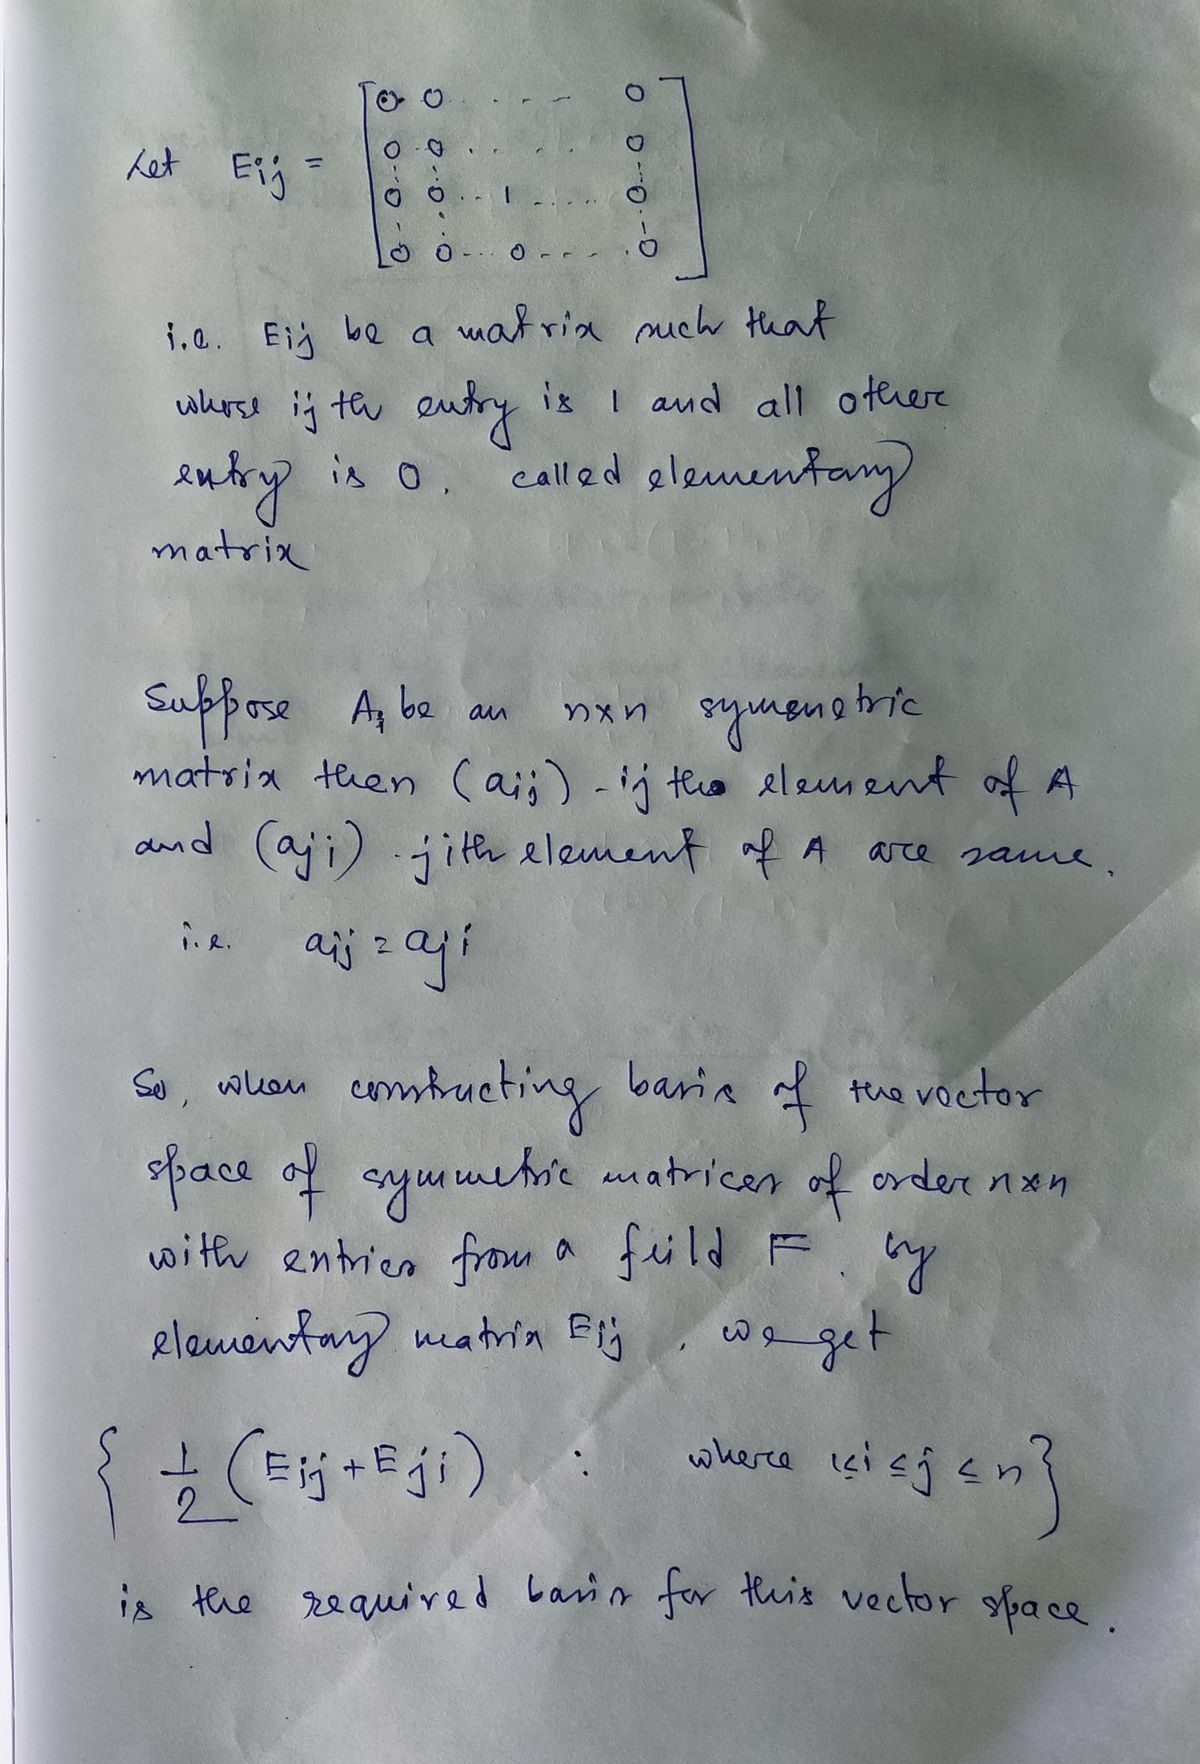 Let Eij = [ 0 0 . . . - - - 0
0 0 . . . . . 0
0 0 . . 1 - . . . . 0
0 0 . . . 0 - - - . 0 ]
i.e. Eij be a matrix such that
whose ij th entry is 1 and all other
entry is 0. called elementary
matrix
Suppose A be an n×n symmetric
matrix then (aij) - ij th element of A
and (aji) - jith element of A are same.
i.e. aij = aji
So, when constructing basis of the vector
space of symmetric matrices of order n×n
with entries from a feild F. by
elementary matrix Eij, we get
{ 1/2 (Eij + Eji) : where 1≤i≤j≤n}
is the required basis for this vector space.